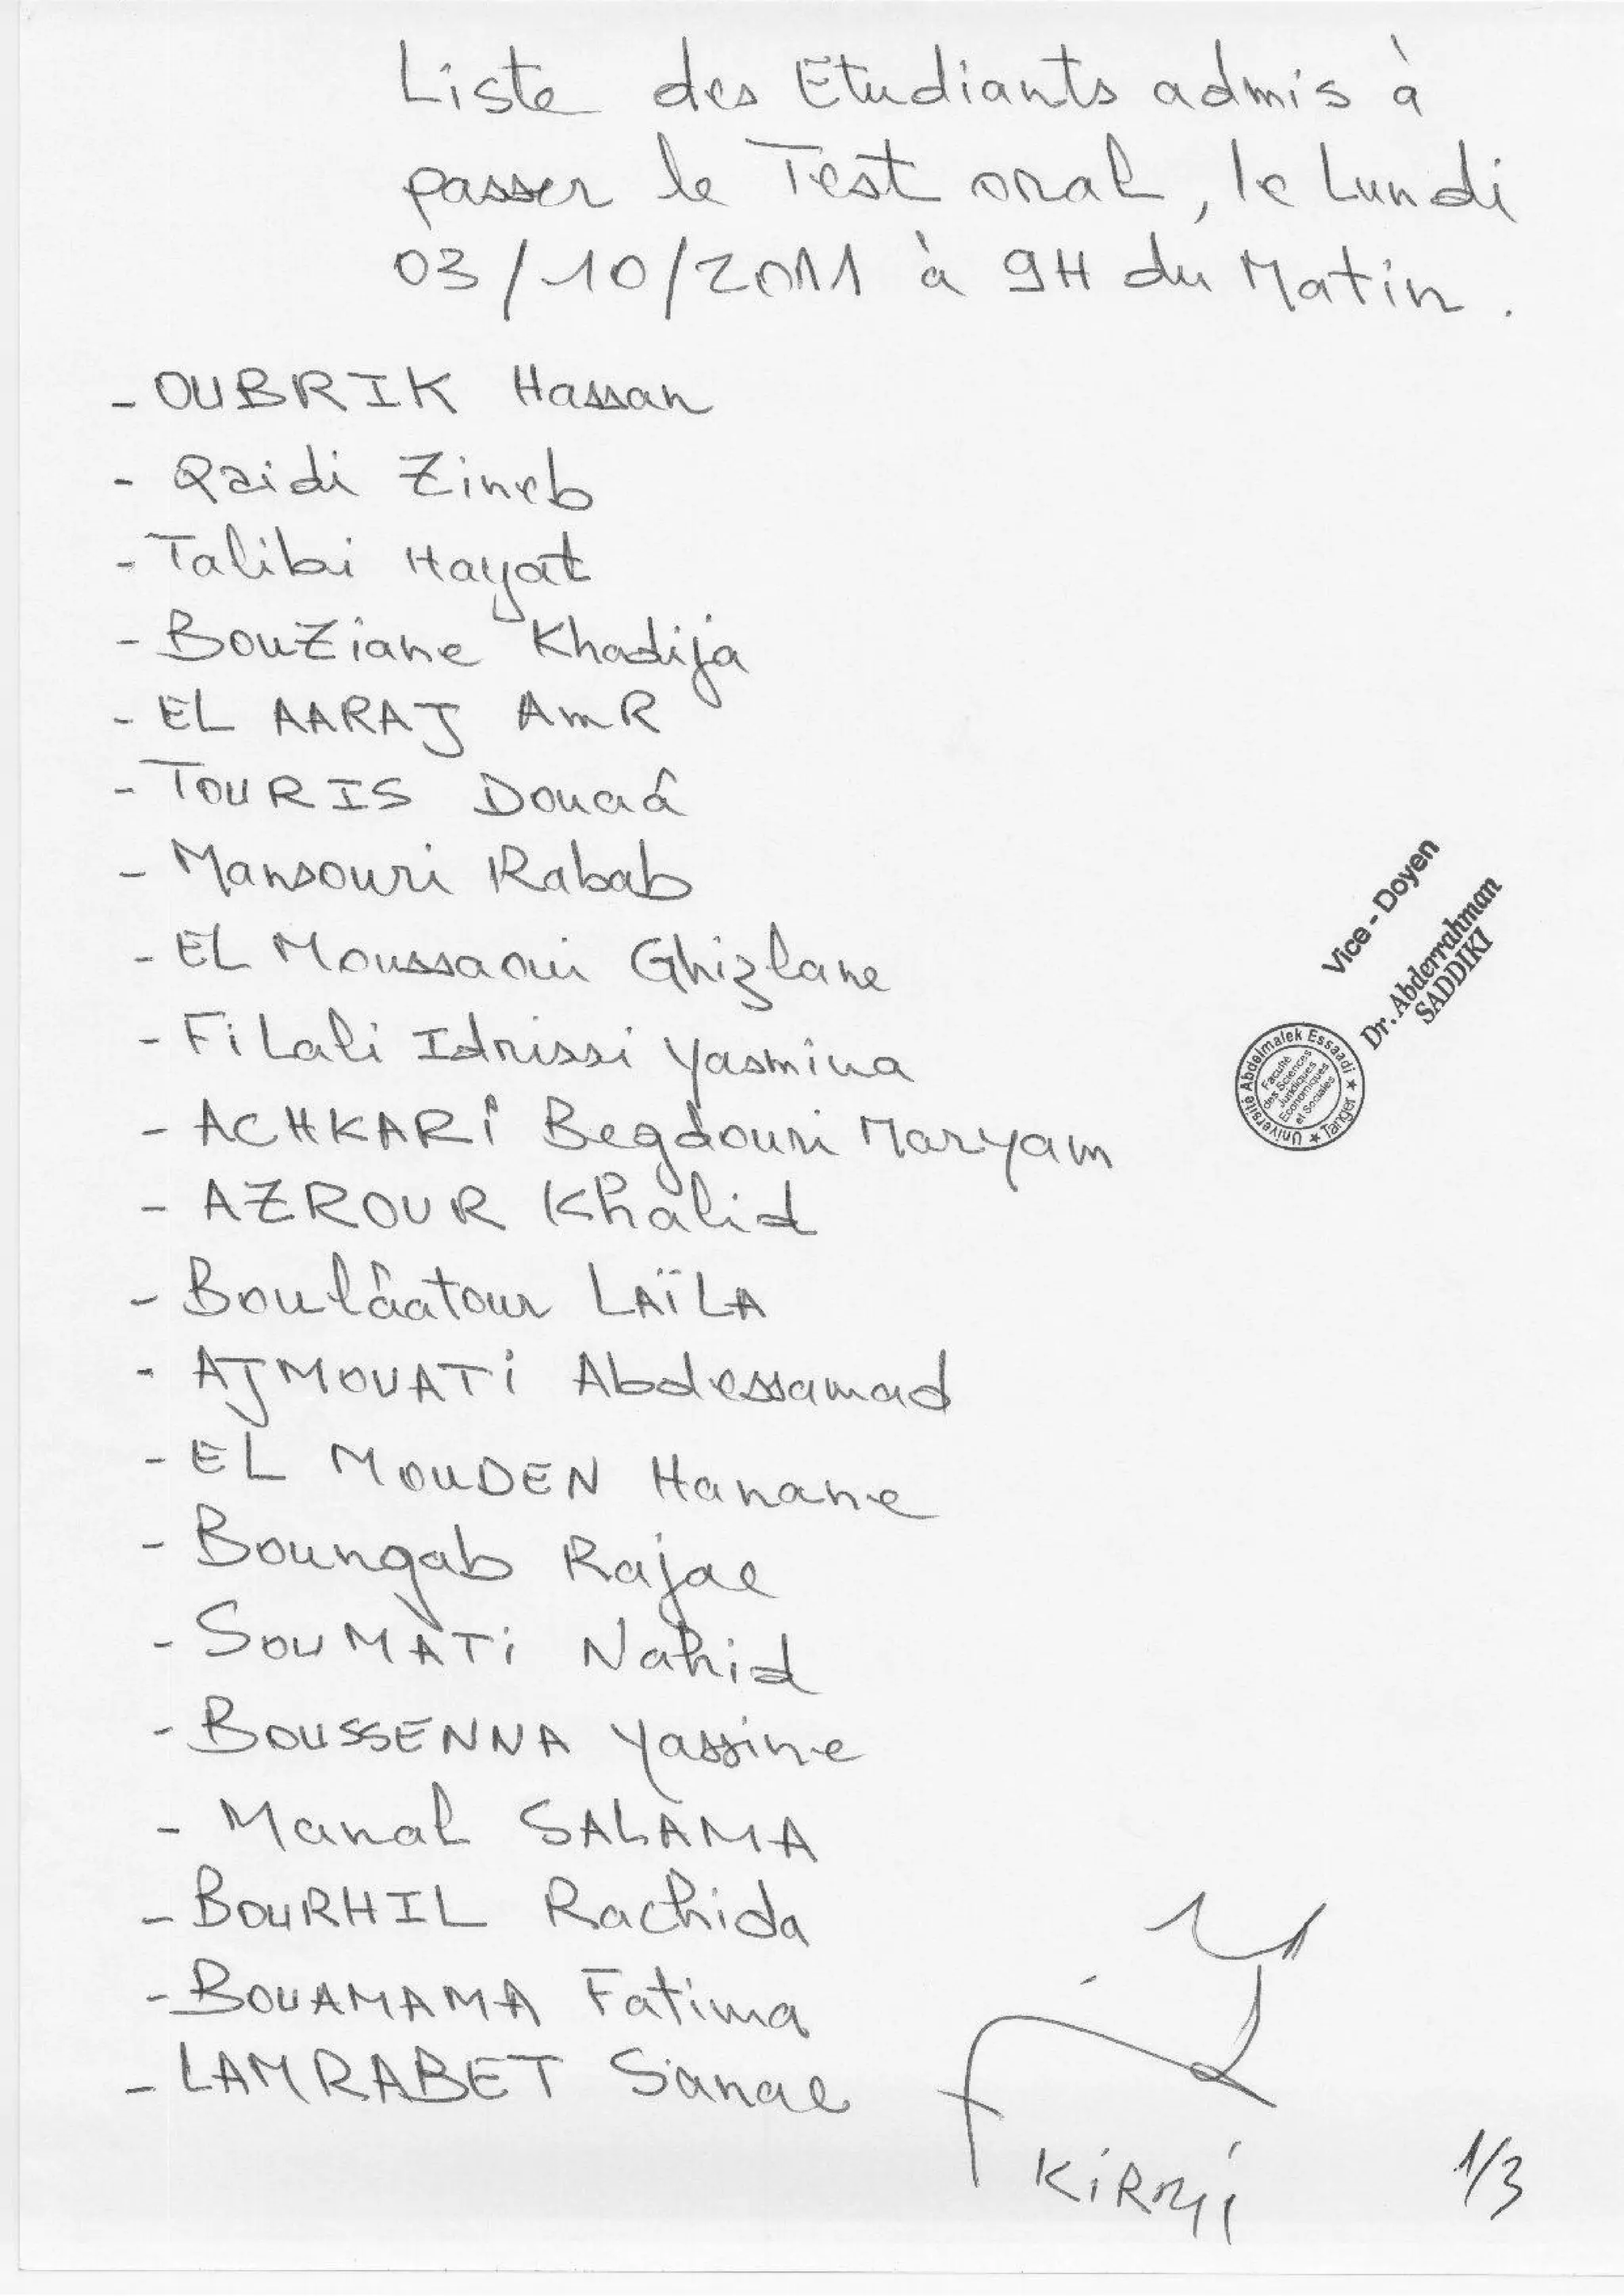 Liste des Etudiants admis à
passer le Test oral, le Lundi
03/10/2011 à 9H du Matin.
- OUBRIK Hassan
- Qaidi Zineb
- Talibi Hayat
- BouZiane Khadija
- EL AARAJ AmR
- TOURIS Douaâ
- Mansouri Rabab
- EL Moussaoui Ghizlane
- FiLali Idrissi Yasmina
- ACHKARî Begdouri Maryam
- AZROUR Khalid
- Boulâatour LAÏLA
- AJMOUATi Abdessamad
- EL MOUDEN Hanane
- Boungab Rajae
- SOUMATi Nahid
- BOUSSENNA Yassine
- Manal SALAMA
- BOURHIL Rachida
- BOUAMAMA Fatima
- LAMRABET Sanae
Vice - Doyen
Dr. Abderrahman
SADDIKI
Université Abdelmalek Essaadi ★ Tanger ★
Faculté
des Sciences
Juridiques
Economiques
et Sociales
1/3